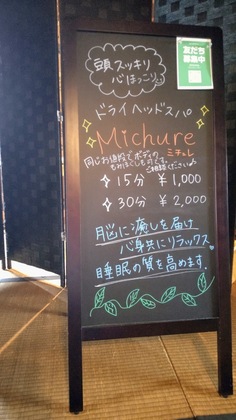 頭スッキリ
心ほっこり
友だち
募集中
ドライヘッドスパ
Michure
ミチュレ
同じお値段でボディの
もみほぐしも可です。
ご相談ください♪
15分 ¥1,000
30分 ¥2,000
脳に癒しを届け
心身共にリラックス
睡眠の質を高めます。